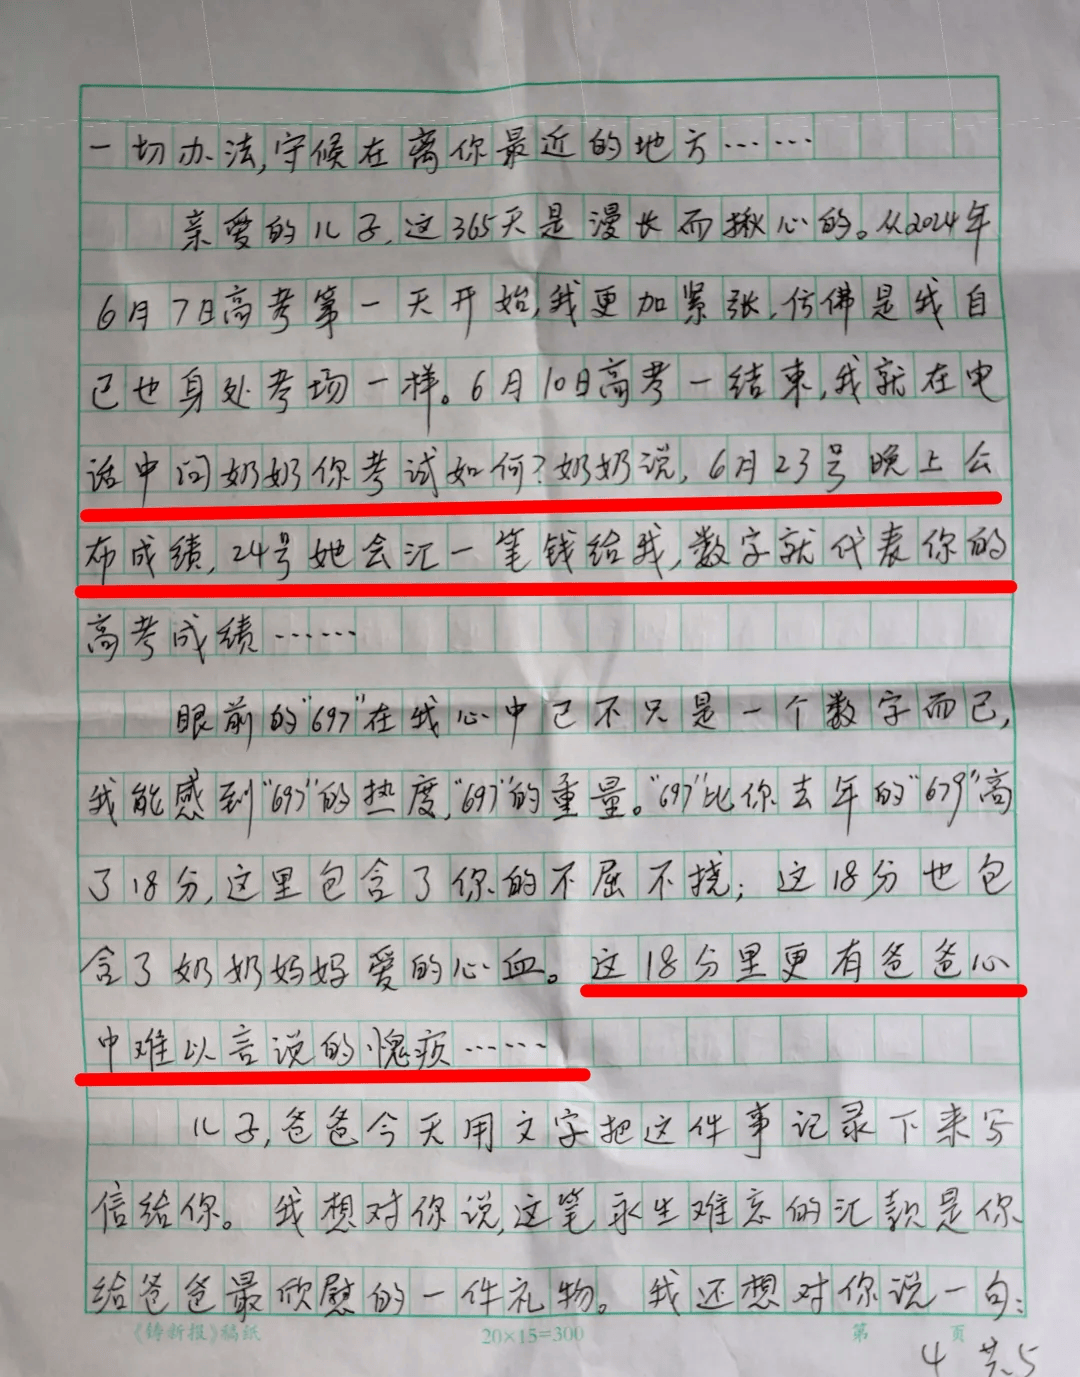 一切办法,守候在离你最近的地方……
亲爱的儿子,这365天是漫长而揪心的。从2024年
6月7日高考第一天开始,我更加紧张,仿佛是我自
己也身处考场一样。6月10日高考一结束,我就在电
话中问奶奶你考试如何?奶奶说,6月23号晚上公
布成绩,24号她会汇一笔钱给我,数字就代表你的
高考成绩……
眼前的“697”在我心中已不只是一个数字而已,
我能感到“697”的热度,“697”的重量。“697”比你去年的“679”高
了18分,这里包含了你的不屈不挠；这18分也包
含了奶奶妈妈爱的心血。这18分里更有爸爸心
中难以言说的愧疚……
儿子,爸爸今天用文字把这件事记录下来写
信给你。我想对你说,这笔永生难忘的汇款是你
给爸爸最欣慰的一件礼物。我还想对你说一句:
《铸新报》稿纸 20×15=300 第 页
4 共5